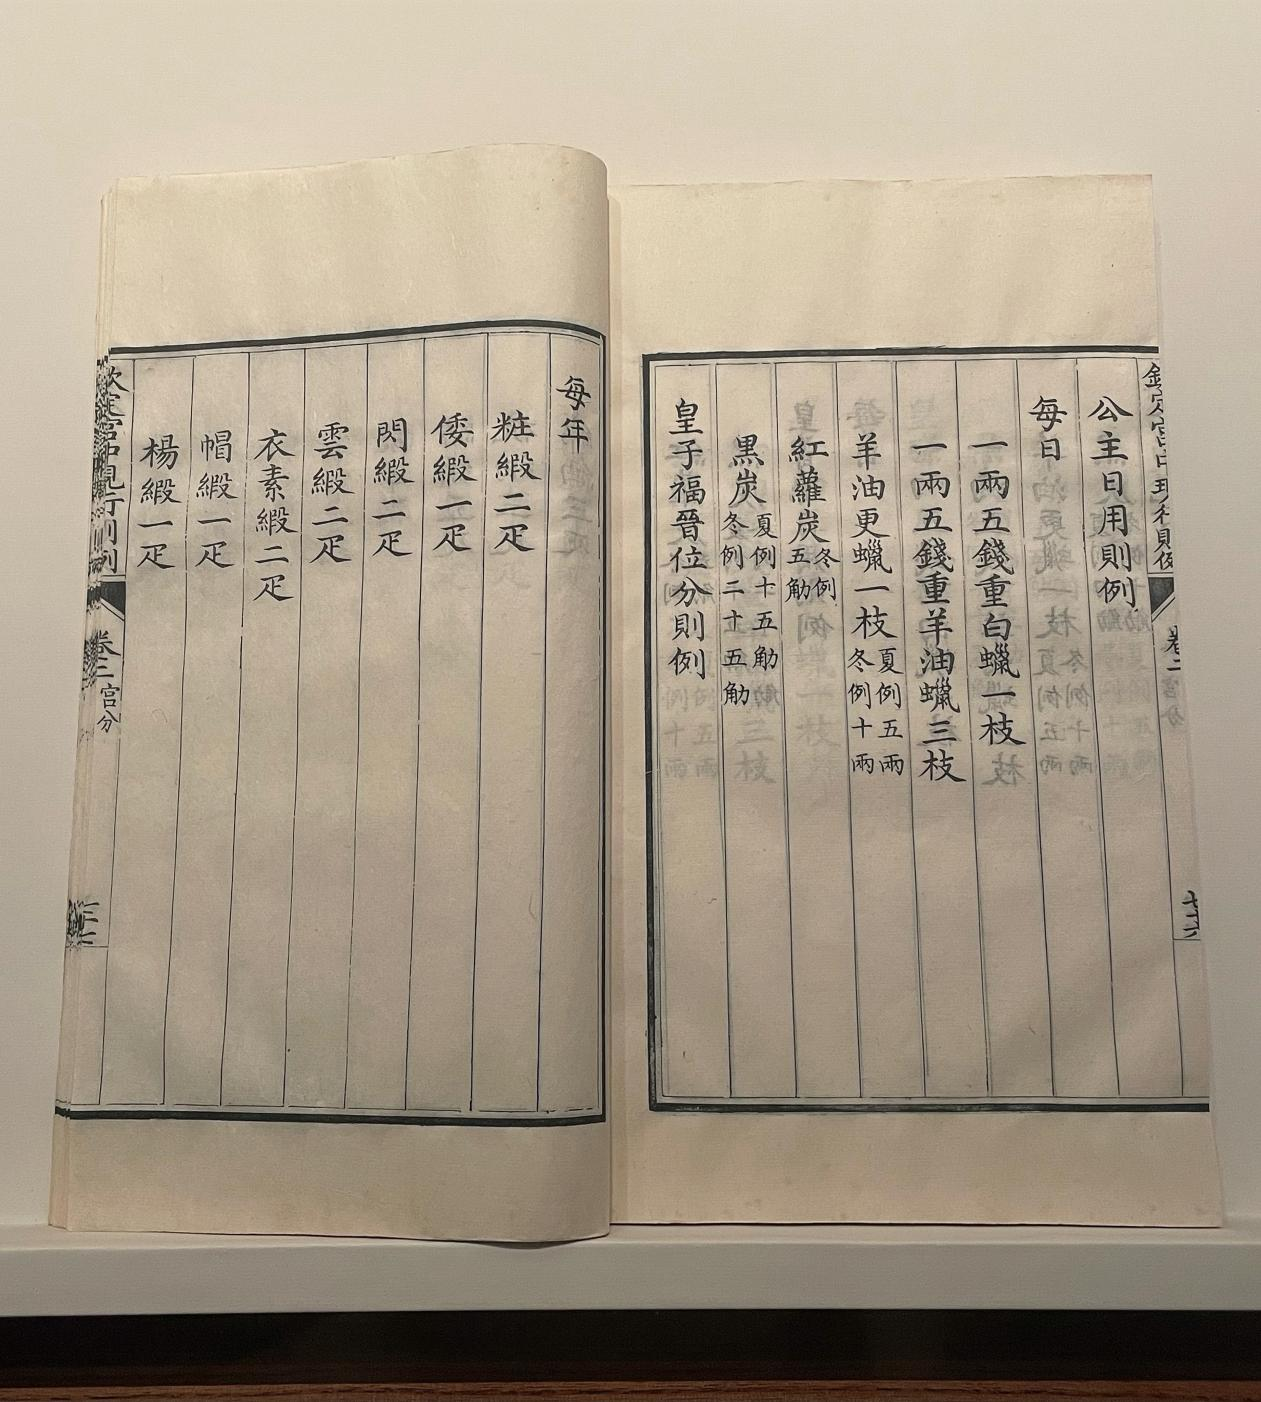 欽定宮中現行則例 卷二 宮分 七十六
公主日用則例
每日
一兩五錢重白蠟一枝
一兩五錢重羊油蠟三枝
羊油更蠟一枝夏例五兩冬例十兩
紅蘿炭冬例五觔
黑炭夏例十五觔冬例二十五觔
皇子福晉位分則例
每年
粧緞二疋
倭緞二疋
閃緞二疋
雲緞二疋
衣素緞二疋
帽緞一疋
楊緞一疋
欽定宮中現行則例 卷二 宮分